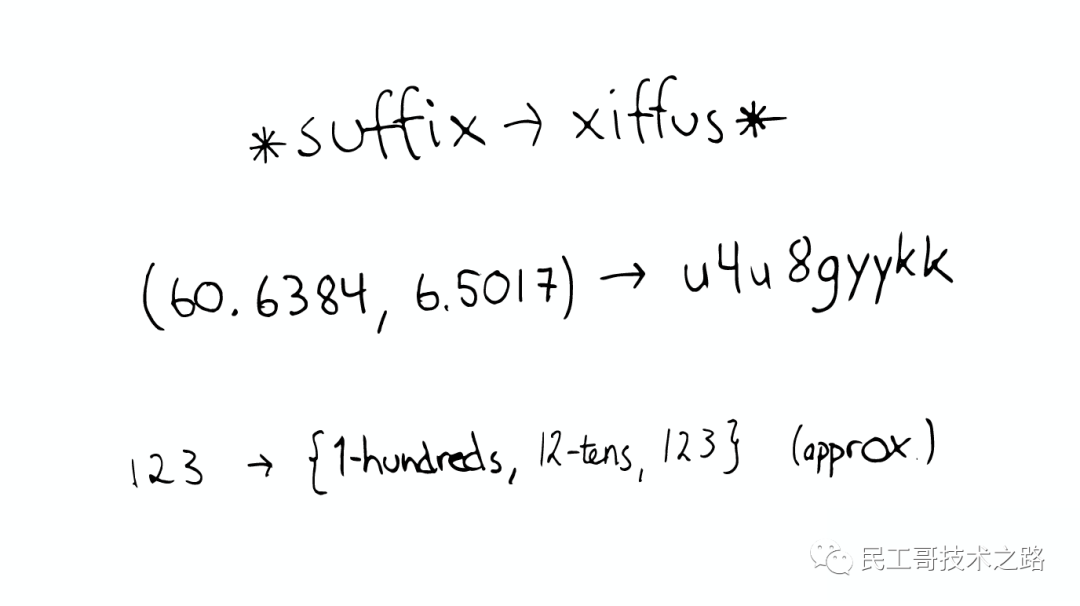 *suffix → xiffus*
(60.6384, 6.5017) → u4u8gyykk
123 → {1-hundreds, 12-tens, 123} (approx.)
民工哥技术之路